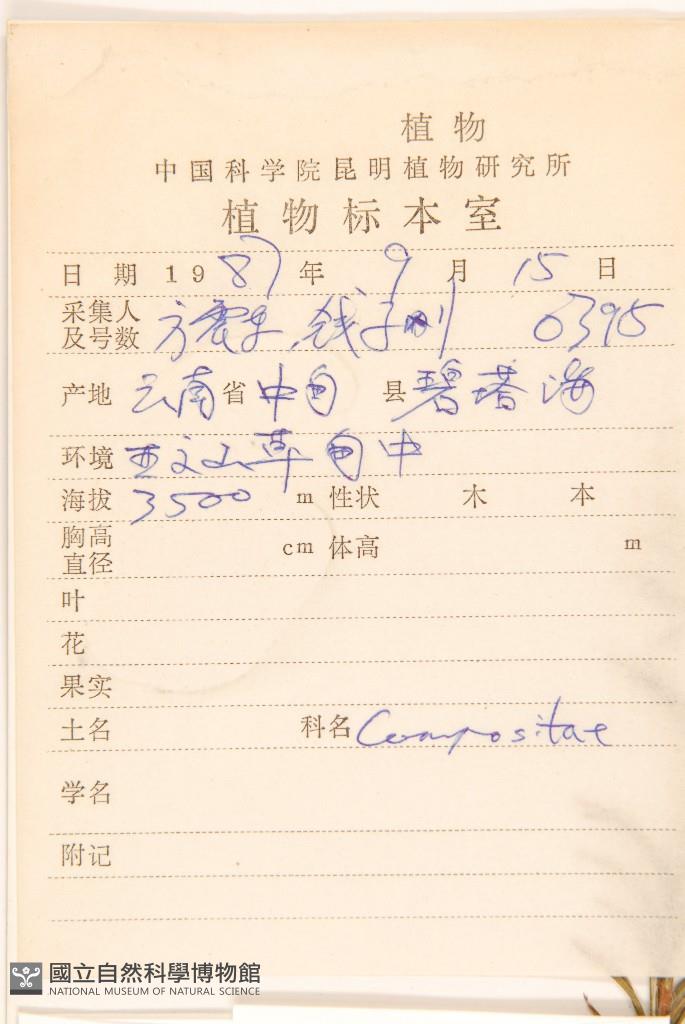 植物
中国科学院昆明植物研究所
植物标本室
日 期 1987年 9月 15日
采集人 及号数 方震东、钱子刚 0395
产地 云南省 中甸 县 碧塔海
环境 草甸中
海拔 3500 m 性状 木 本
胸高 直径 cm 体高 m
叶
花
果实
土名 科名 Compositae
学名
附记
國立自然科學博物館
NATIONAL MUSEUM OF NATURAL SCIENCE